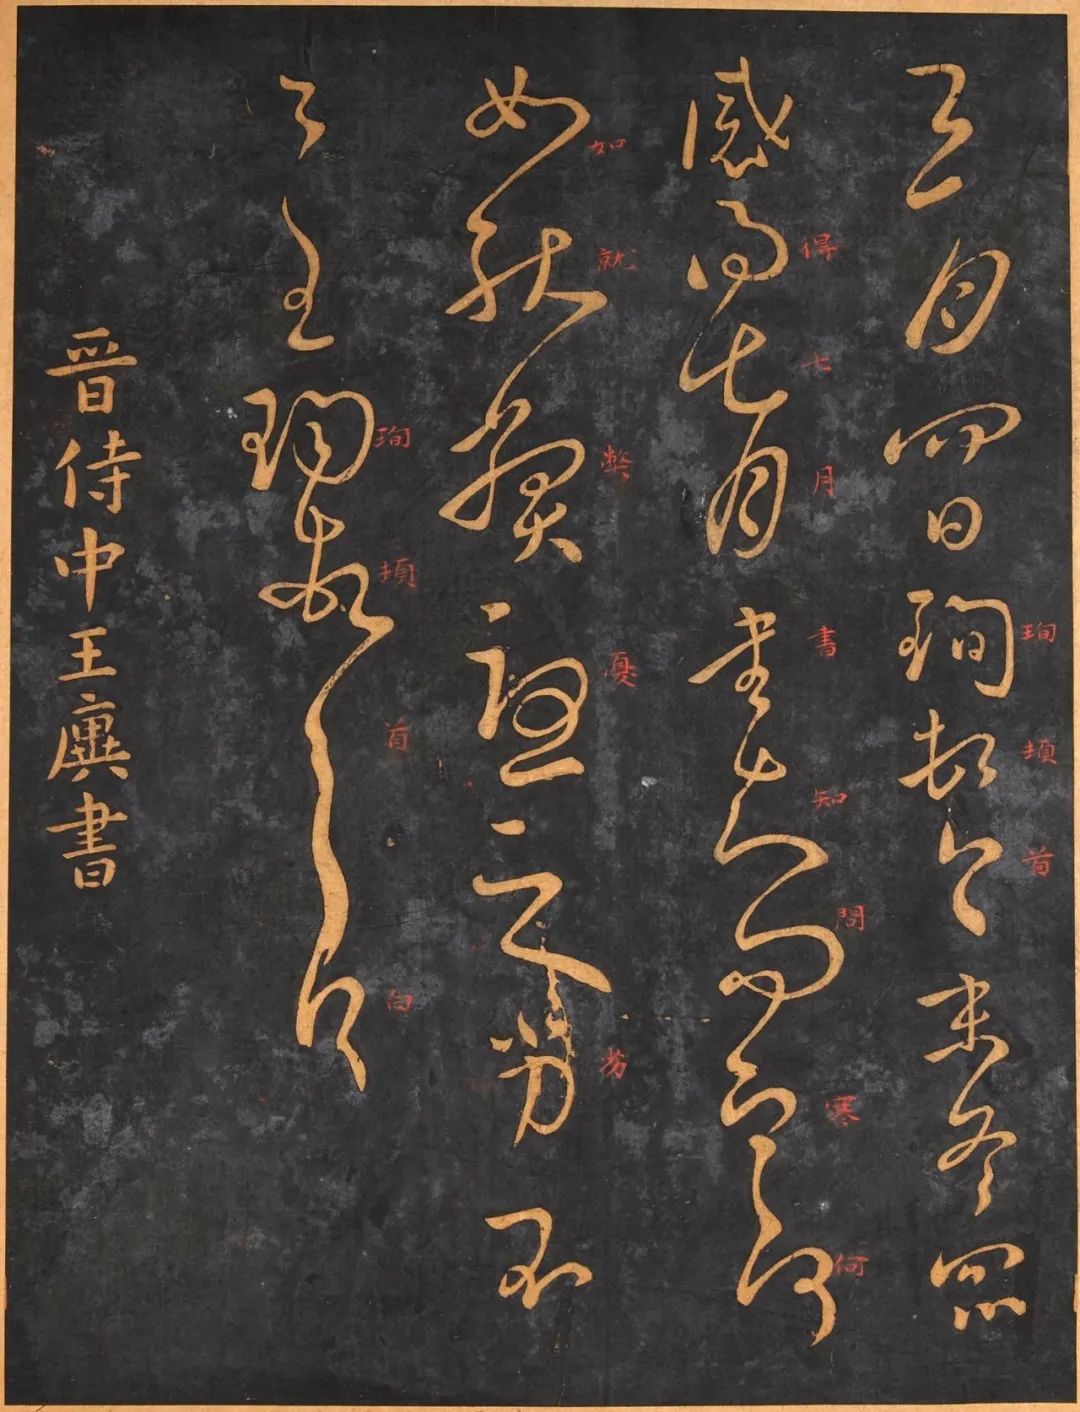 珣頓首
三月四日珣頓首末冬眾
得七月書知問寒何
感得七月書知問寒何
如就弊憂勞
如就弊憂之勞不
珣頓首白
王珣頓首白
晉侍中王廙書